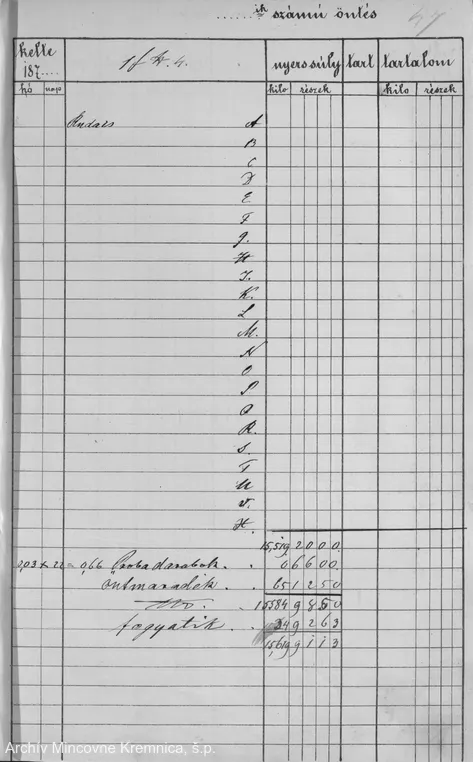 ik számú öntés
47
kelte nyers súly tart tartalom
187 1 f k. 4.
hó nap kilo részek kilo részek
Rudals A
B
C
D
E
F
g.
H
I.
K.
L
M.
N
O
P
Q
R.
S.
T
U
V.
X.
15,519 2000.
0,03 x 22 = 0,66 Próba darabok . . 06600.
öntmaradék . 651250
15584 9850
fogyaték . . 34 9263
15,619 9113
Archív Mincovne Kremnica, š.p.